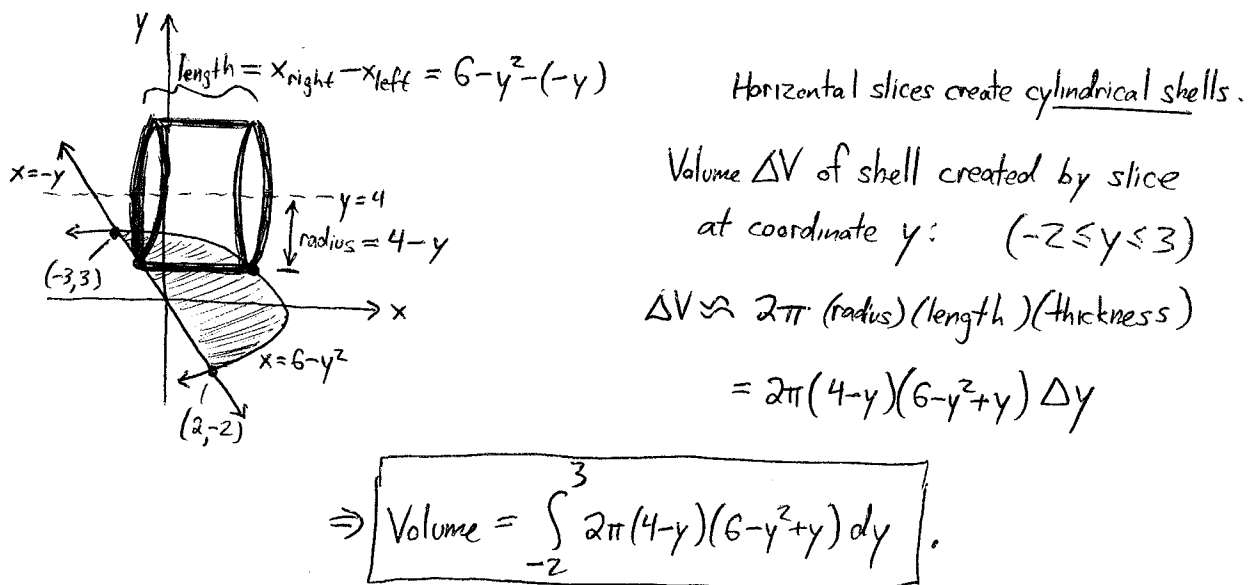 y
length = x_right − x_left = 6−y²−(−y)
x=−y
y=4
radius = 4−y
(−3,3)
x
x=6−y²
(2,−2)
Horizontal slices create cylindrical shells.
Volume ΔV of shell created by slice
at coordinate y: (−2≤y≤3)
ΔV ≈ 2π (radius)(length)(thickness)
= 2π(4−y)(6−y²+y) Δy
⇒ Volume = ∫₋₂³ 2π(4−y)(6−y²+y) dy .